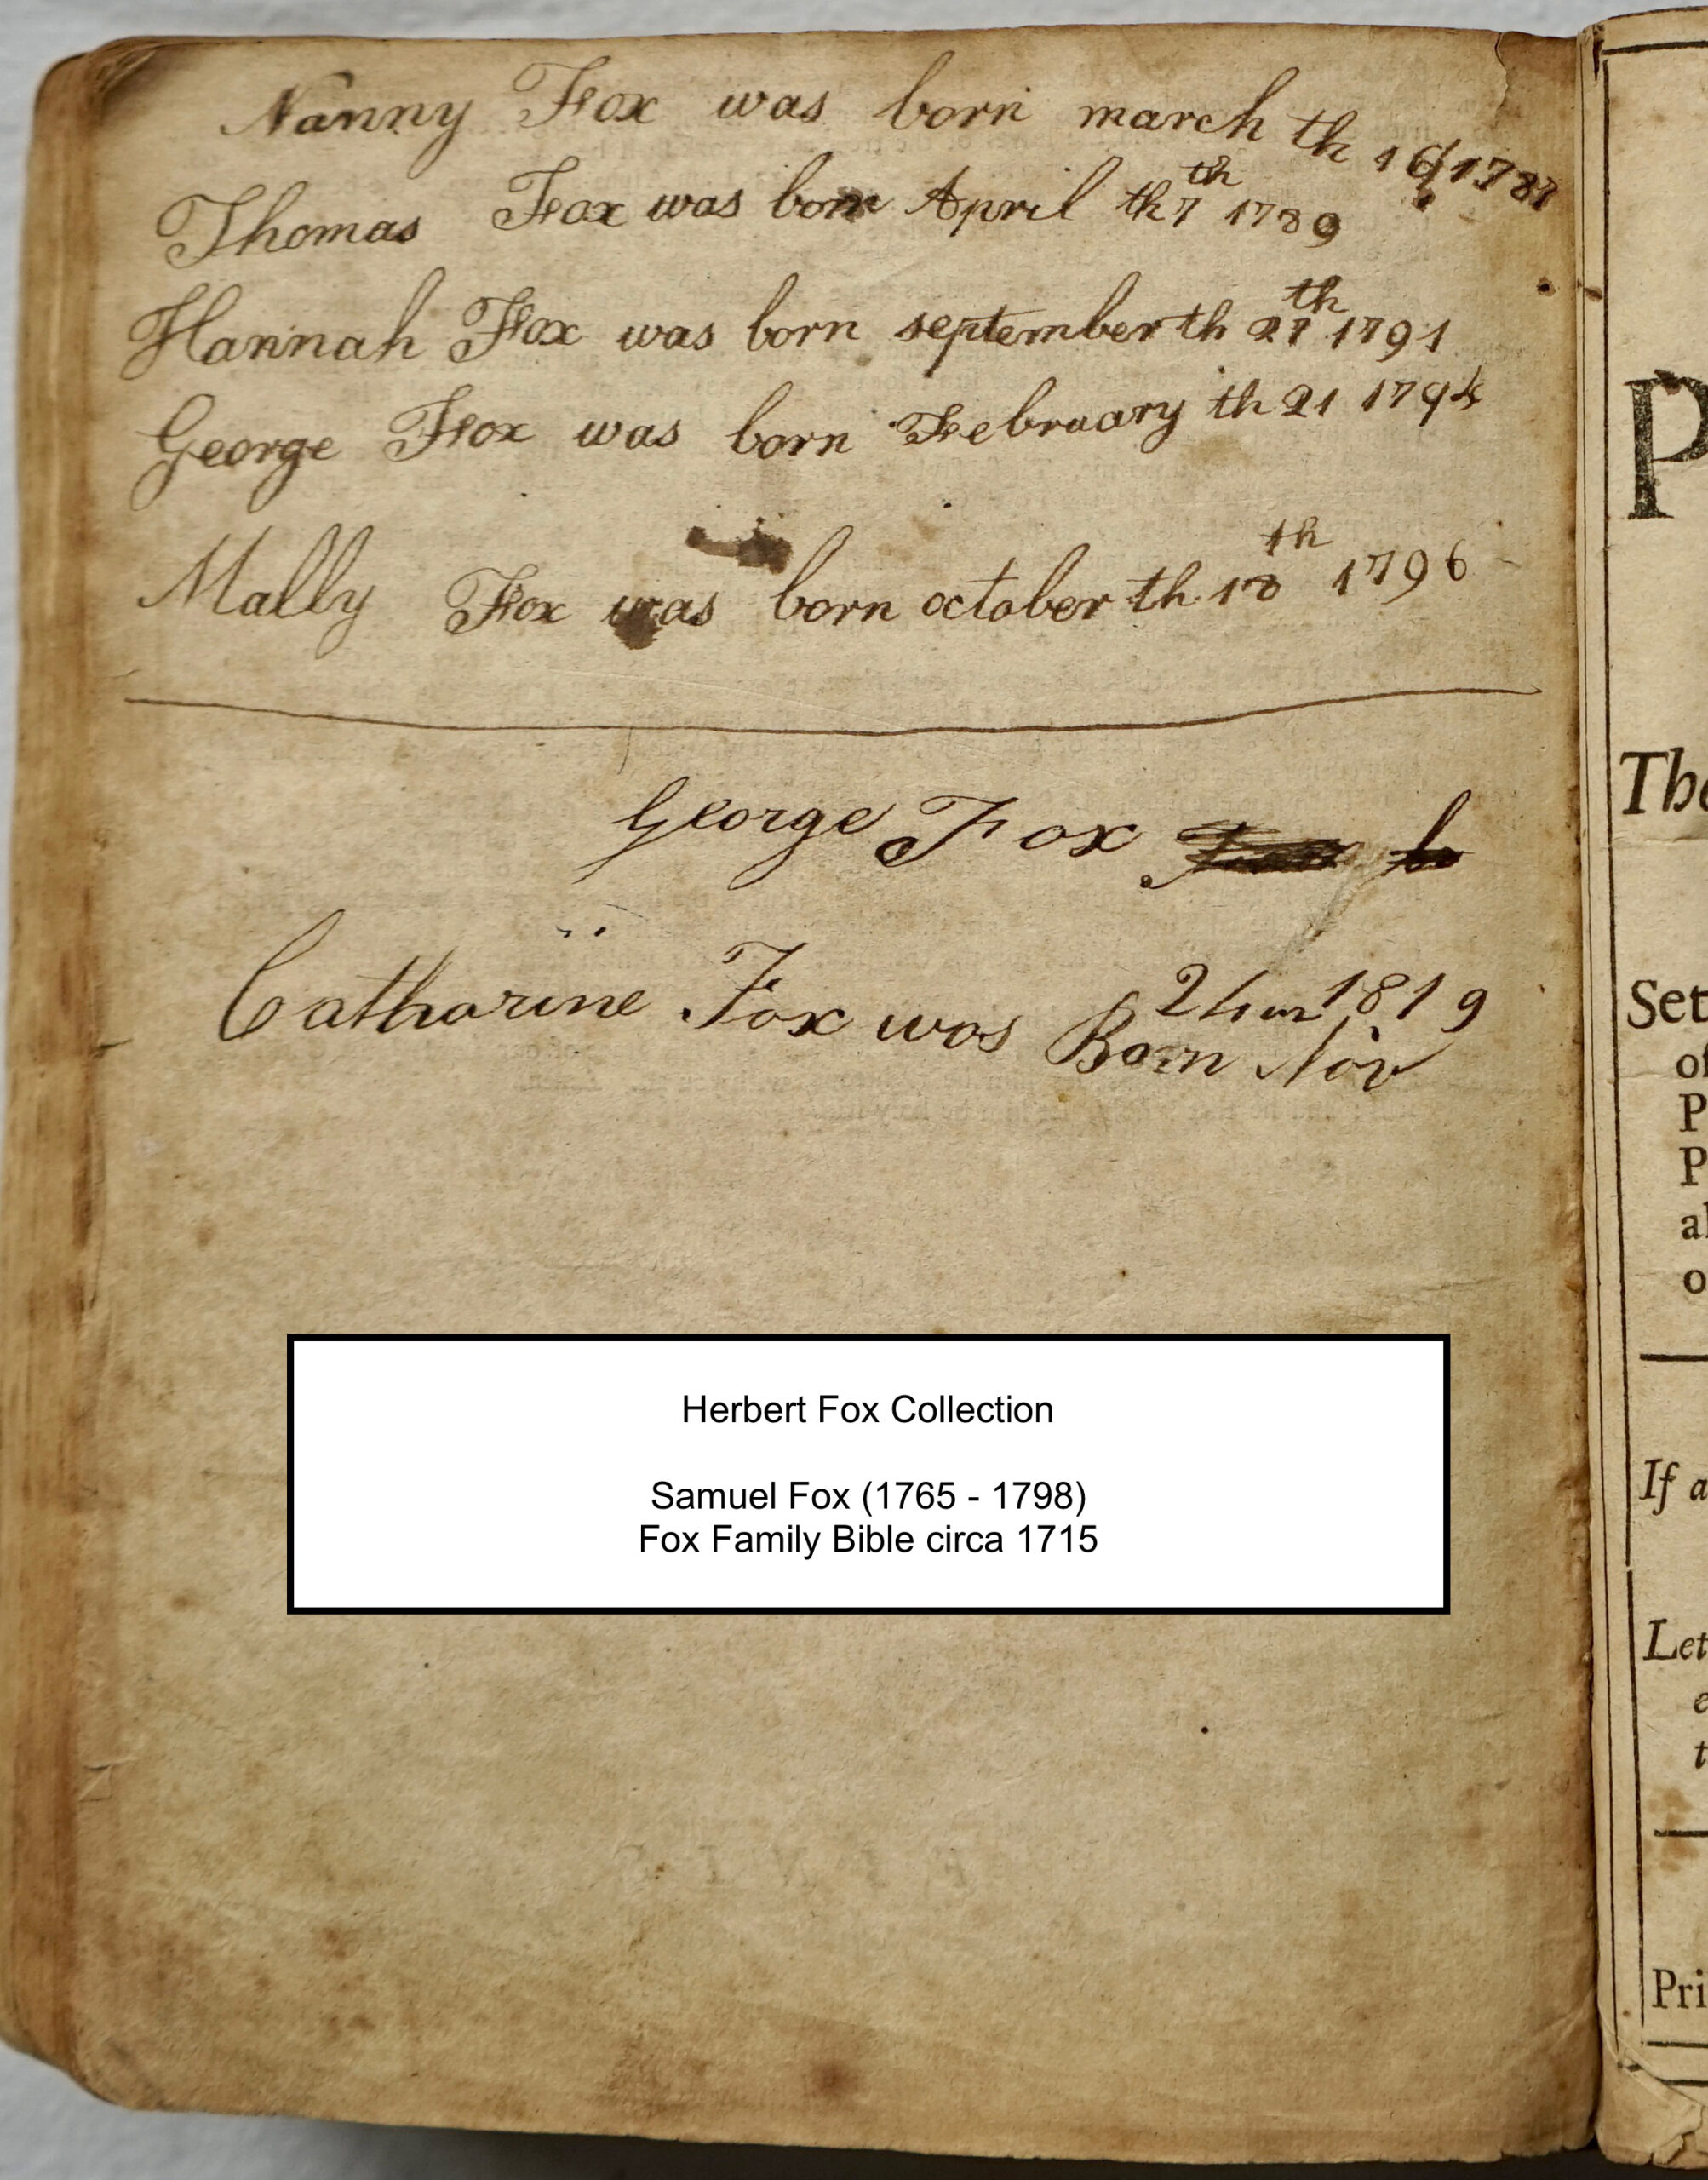 Nanny Fox was born march th 16 1787
Thomas Fox was born April th 7th 1789
Hannah Fox was born september th 27th 1791
George Fox was born February th 21 1794
Mally Fox was born october th 18th 1796
George Fox
Catharine Fox was Born Nov 1819
Herbert Fox Collection
Samuel Fox (1765 - 1798)
Fox Family Bible circa 1715
P
The
Set
of
P
P
al
o
If a
Let
e
t
Pri